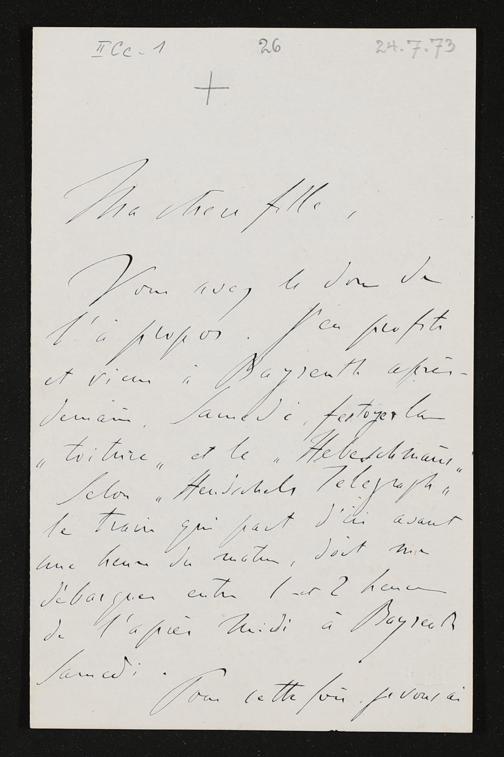 II Cc-1 26 24.7.73
Ma chère fille,
Vous avez le don de
l'à propos. J'en profite
et viens à Bayreuth après-
demain, Samedi, festoyer la
„toiture„ et le „Hebeschmaus„
Selon „Hendschels Telegraph„
le train qui part d'ici avant
une heure du matin, doit me
débarquer entre 1 et 2 heures
de l'après midi à Bayreuth
Samedi.
Pour cette fois, je vous ai